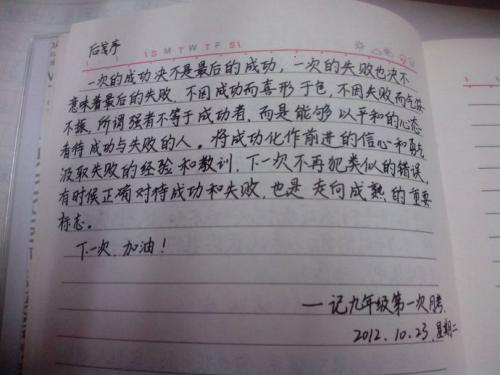 后发序
S M T W T F S
一次的成功决不是最后的成功，一次的失败也决不
意味着最后的失败．不因成功而喜形于色，不因失败而气馁
不振，所谓强者不等于成功者，而是能够以平和的心态
看待成功与失败的人。将成功化作前进的信心和勇气
汲取失败的经验和教训，下一次不再犯类似的错误，
有时候正确对待成功和失败，也是走向成熟的重要
标志。
下一次，加油！
——记九年级第一次月考
2012.10.23.星期二